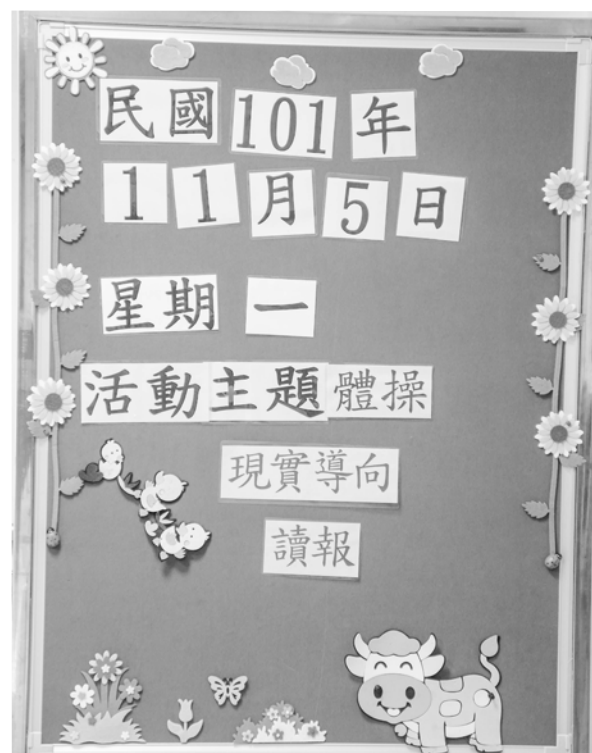 民國101年
11月5日
星期一
活動主題體操
現實導向
讀報